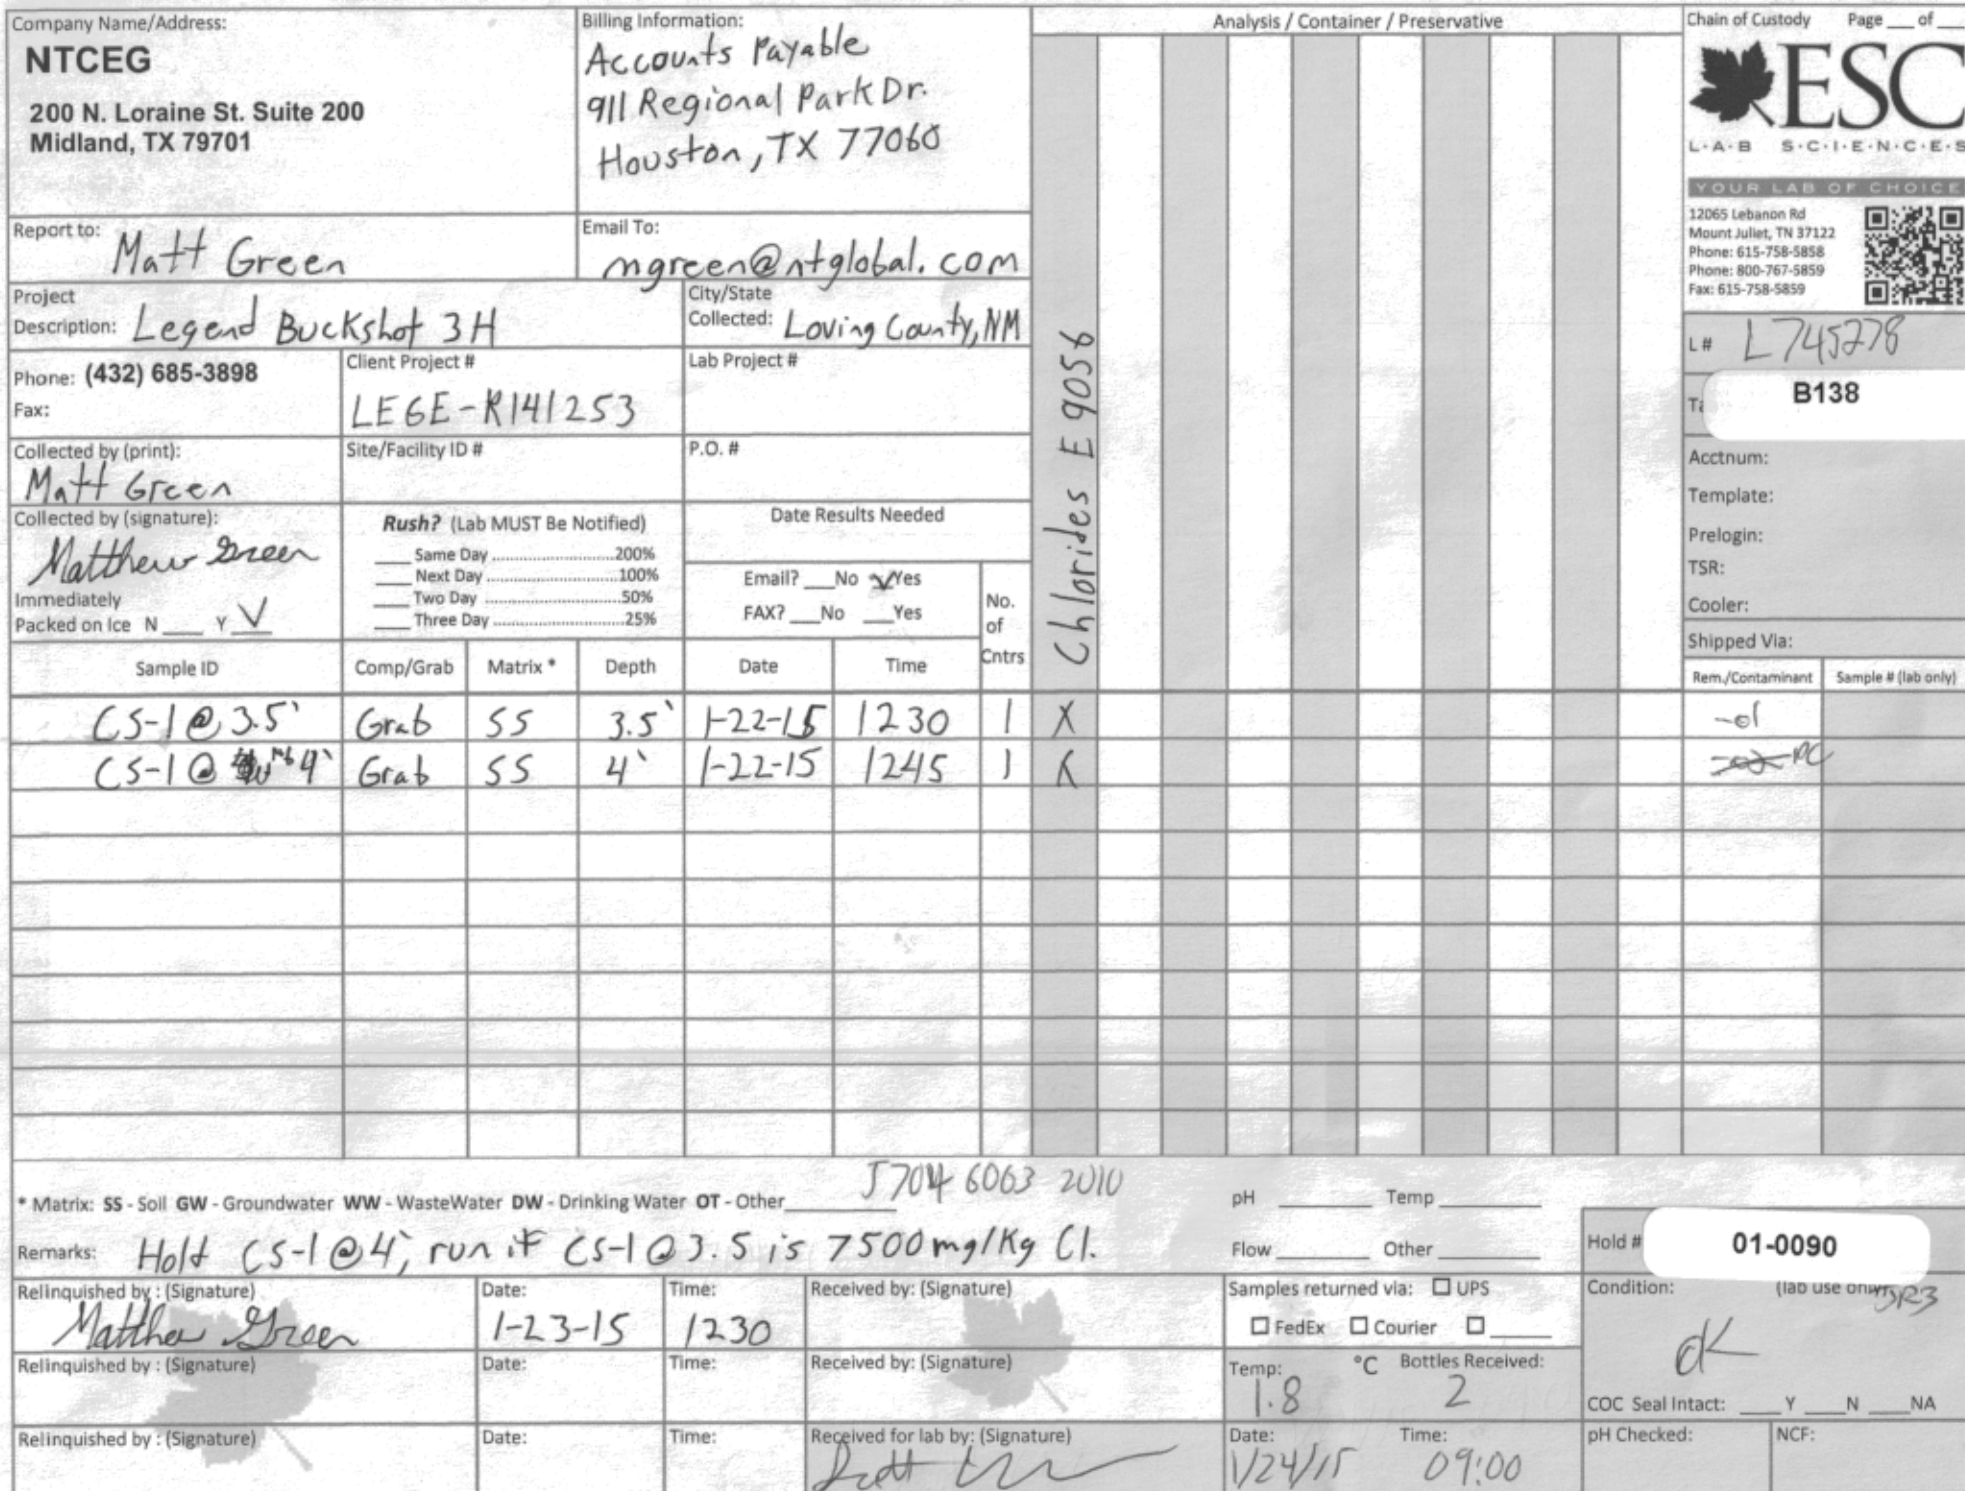 Company Name/Address:
NTCEG
200 N. Loraine St. Suite 200
Midland, TX 79701
Billing Information:
Accounts Payable
911 Regional Park Dr.
Houston, TX 77060
Analysis / Container / Preservative
Chain of Custody Page ___ of ___
ESC
L·A·B S·C·I·E·N·C·E·S
YOUR LAB OF CHOICE
12065 Lebanon Rd
Mount Juliet, TN 37122
Phone: 615-758-5858
Phone: 800-767-5859
Fax: 615-758-5859
Report to: Matt Green
Email To:
mgreen@ntglobal.com
Project
Description: Legend Buckshot 3H
City/State
Collected: Loving County, NM
L# L745278
B138
Phone: (432) 685-3898
Fax:
Client Project #
LEGE-R141253
Lab Project #
Collected by (print):
Matt Green
Site/Facility ID #
P.O. #
Chlorides E 9056
Acctnum:
Template:
Prelogin:
TSR:
Cooler:
Shipped Via:
Collected by (signature):
Matthew Green
Immediately
Packed on Ice N ___ Y √
Rush? (Lab MUST Be Notified)
___ Same Day ..............................200%
___ Next Day ..............................100%
___ Two Day ..............................50%
___ Three Day ..............................25%
Date Results Needed
Email? ___No √Yes
FAX? ___No ___Yes
No.
of
Cntrs
Sample ID Comp/Grab Matrix * Depth Date Time
Rem./Contaminant Sample # (lab only)
CS-1@3.5' Grab SS 3.5' 1-22-15 1230 1 X -01
CS-1@ 4' Grab SS 4' 1-22-15 1245 1 X
5704 6063 2010
* Matrix: SS - Soil GW - Groundwater WW - WasteWater DW - Drinking Water OT - Other__________
pH _______ Temp _______
Remarks: Hold CS-1@4', run if CS-1@3.5 is 7500mg/Kg Cl.
Flow _______ Other _______
Hold # 01-0090
Relinquished by : (Signature)
Matthew Green
Date:
1-23-15
Time:
1230
Received by: (Signature)
Samples returned via: ☐ UPS
☐ FedEx ☐ Courier ☐ _____
Condition: (lab use only)
OK
Relinquished by : (Signature)
Date:
Time:
Received by: (Signature)
Temp: °C
1.8
Bottles Received:
2
COC Seal Intact: ___Y ___N ___NA
Relinquished by : (Signature)
Date:
Time:
Received for lab by: (Signature)
Date:
1/24/15
Time:
09:00
pH Checked:
NCF: